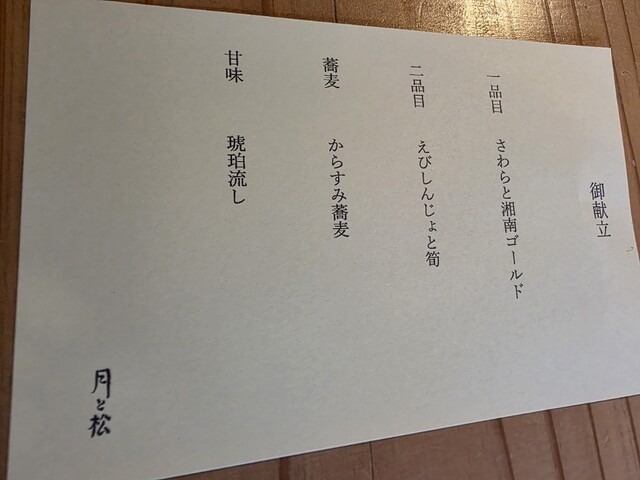 御献立
一品目　さわらと湘南ゴールド
二品目　えびしんじょと筍
蕎麦　からすみ蕎麦
甘味　琥珀流し
月と松